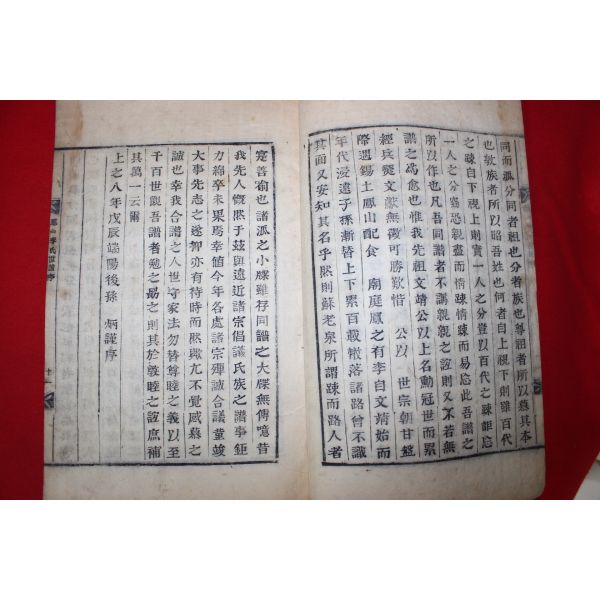 同而派分同者祖也分者族也尊祖者所以慕其本
也敦族者所以昭吾姓也何者自上視下則雖百代
之疎自下視上則實一人之分豈以百代之疎詎忘
一人之分竊恐親盡而情疎情疎而易忘此吾譜之
所以作也凡吾同譜者不講親親之誼則又不若無
譜之爲愈也惟我先祖文靖公以上名勳冠世而累
經兵燹文獻無徵可勝歎惜 公以 世宗朝甘盤
際遇錫土鳳山配食 廟庭鳳之有李自文靖始而
年代浸遠子孫漸替上下累百載轍落諸路曾不識
其面又安知其名乎然則蘇老泉所謂疎而路人者
寔善喩也諸派之小牒雖存同譜之大牒無傳噫昔
我先人慨然于玆與遠近諸宗倡議氏族之譜事鉅
力綿卒未果焉幸値今年各處諸宗殫誠合議董竣
大事先志之遂抑亦有待時而然歟尤不覺感慕之
誠也幸我合譜之人世守家法勿替尊睦之義以至
千百世觀吾譜者勉之勗之則其於敦睦之誼庶補
其萬一云爾
上之八年戊辰端陽後孫 炳謹序
山李氏派譜序